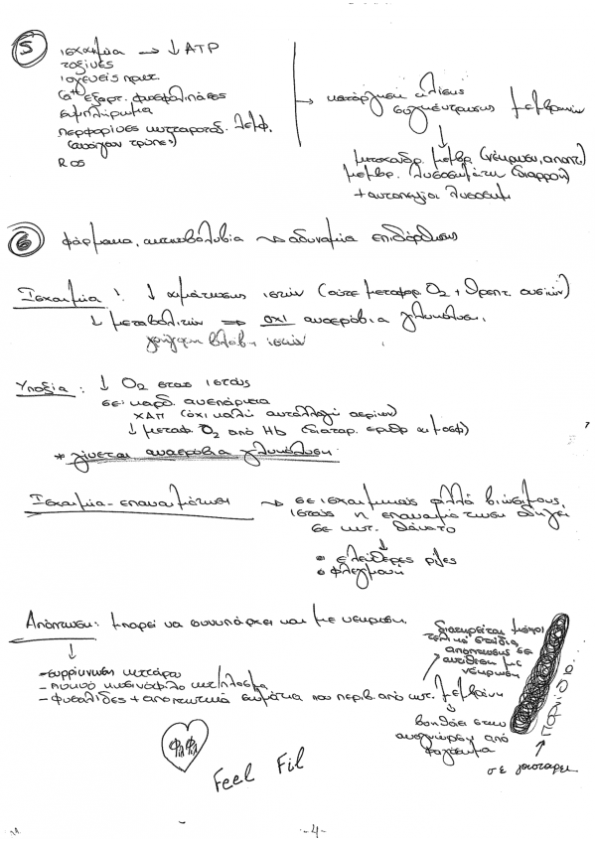 5
ισχαιμία → ↓ ATP
τοξίνες
ιογενείς πρωτ.
Ca++ εξαρτ. φωσφολιπάσες
συμπλήρωμα
περφορίνες κυτταροτοξ. λεμφ.
(ανοίγουν τρύπες)
ROS
→ κατάργηση κλίσης
συγκέντρωσης μεμβρανών
μιτοχονδρ. μεμβρ. (νέκρωση, αποπτ.)
μεμβρ. λυσοσωμάτων (διαρροή)
+ αυτοπεψία λυσοσωμ
6 φάρμακα, ακτινοβολία → αδυναμία επιδιόρθωσης
Ισχαιμία: ↓ αιμάτωσης ιστών (ούτε μεταφορ O2 + θρεπτ. ουσιών)
↓ μεταβολιτών ⇒ όχι αναερόβια γλυκόλυση.
γρήγορη βλάβη ιστών
Υποξία: ↓ O2 στους ιστούς
σε: καρδ. ανεπάρκεια
ΧΑΠ (όχι καλή ανταλλαγή αερίων)
↓ μεταφ O2 από Hb (διαταρ. ερυθρ αιμοσφ)
* γίνεται αναερόβια γλυκόλυση.
Ισχαιμία-επαναιμάτωση → σε ισχαιμικούς αλλά βιώσιμους
ιστούς η επαναιμάτωση οδηγεί
σε κυτ. θάνατο
• ελεύθερες ρίζες
• φλεγμονή
Απόπτωση: μπορεί να συνυπάρχει και με νέκρωση.
- συρρίκνωση κυττάρου
- πυκνό ηωσινόφιλο κυτ/πλασμα
- φυσαλίδες + αποπτωτικά σωμάτια που περιβ από κυτ. μεμβράνη
διατηρείται μέχρι
τελικά στάδια
απόπτωσης σε
αντίθεση με
νέκρωση
βοηθάει στην
αναγνώριση από
φαγόκυττα
Feel Fil
-4-